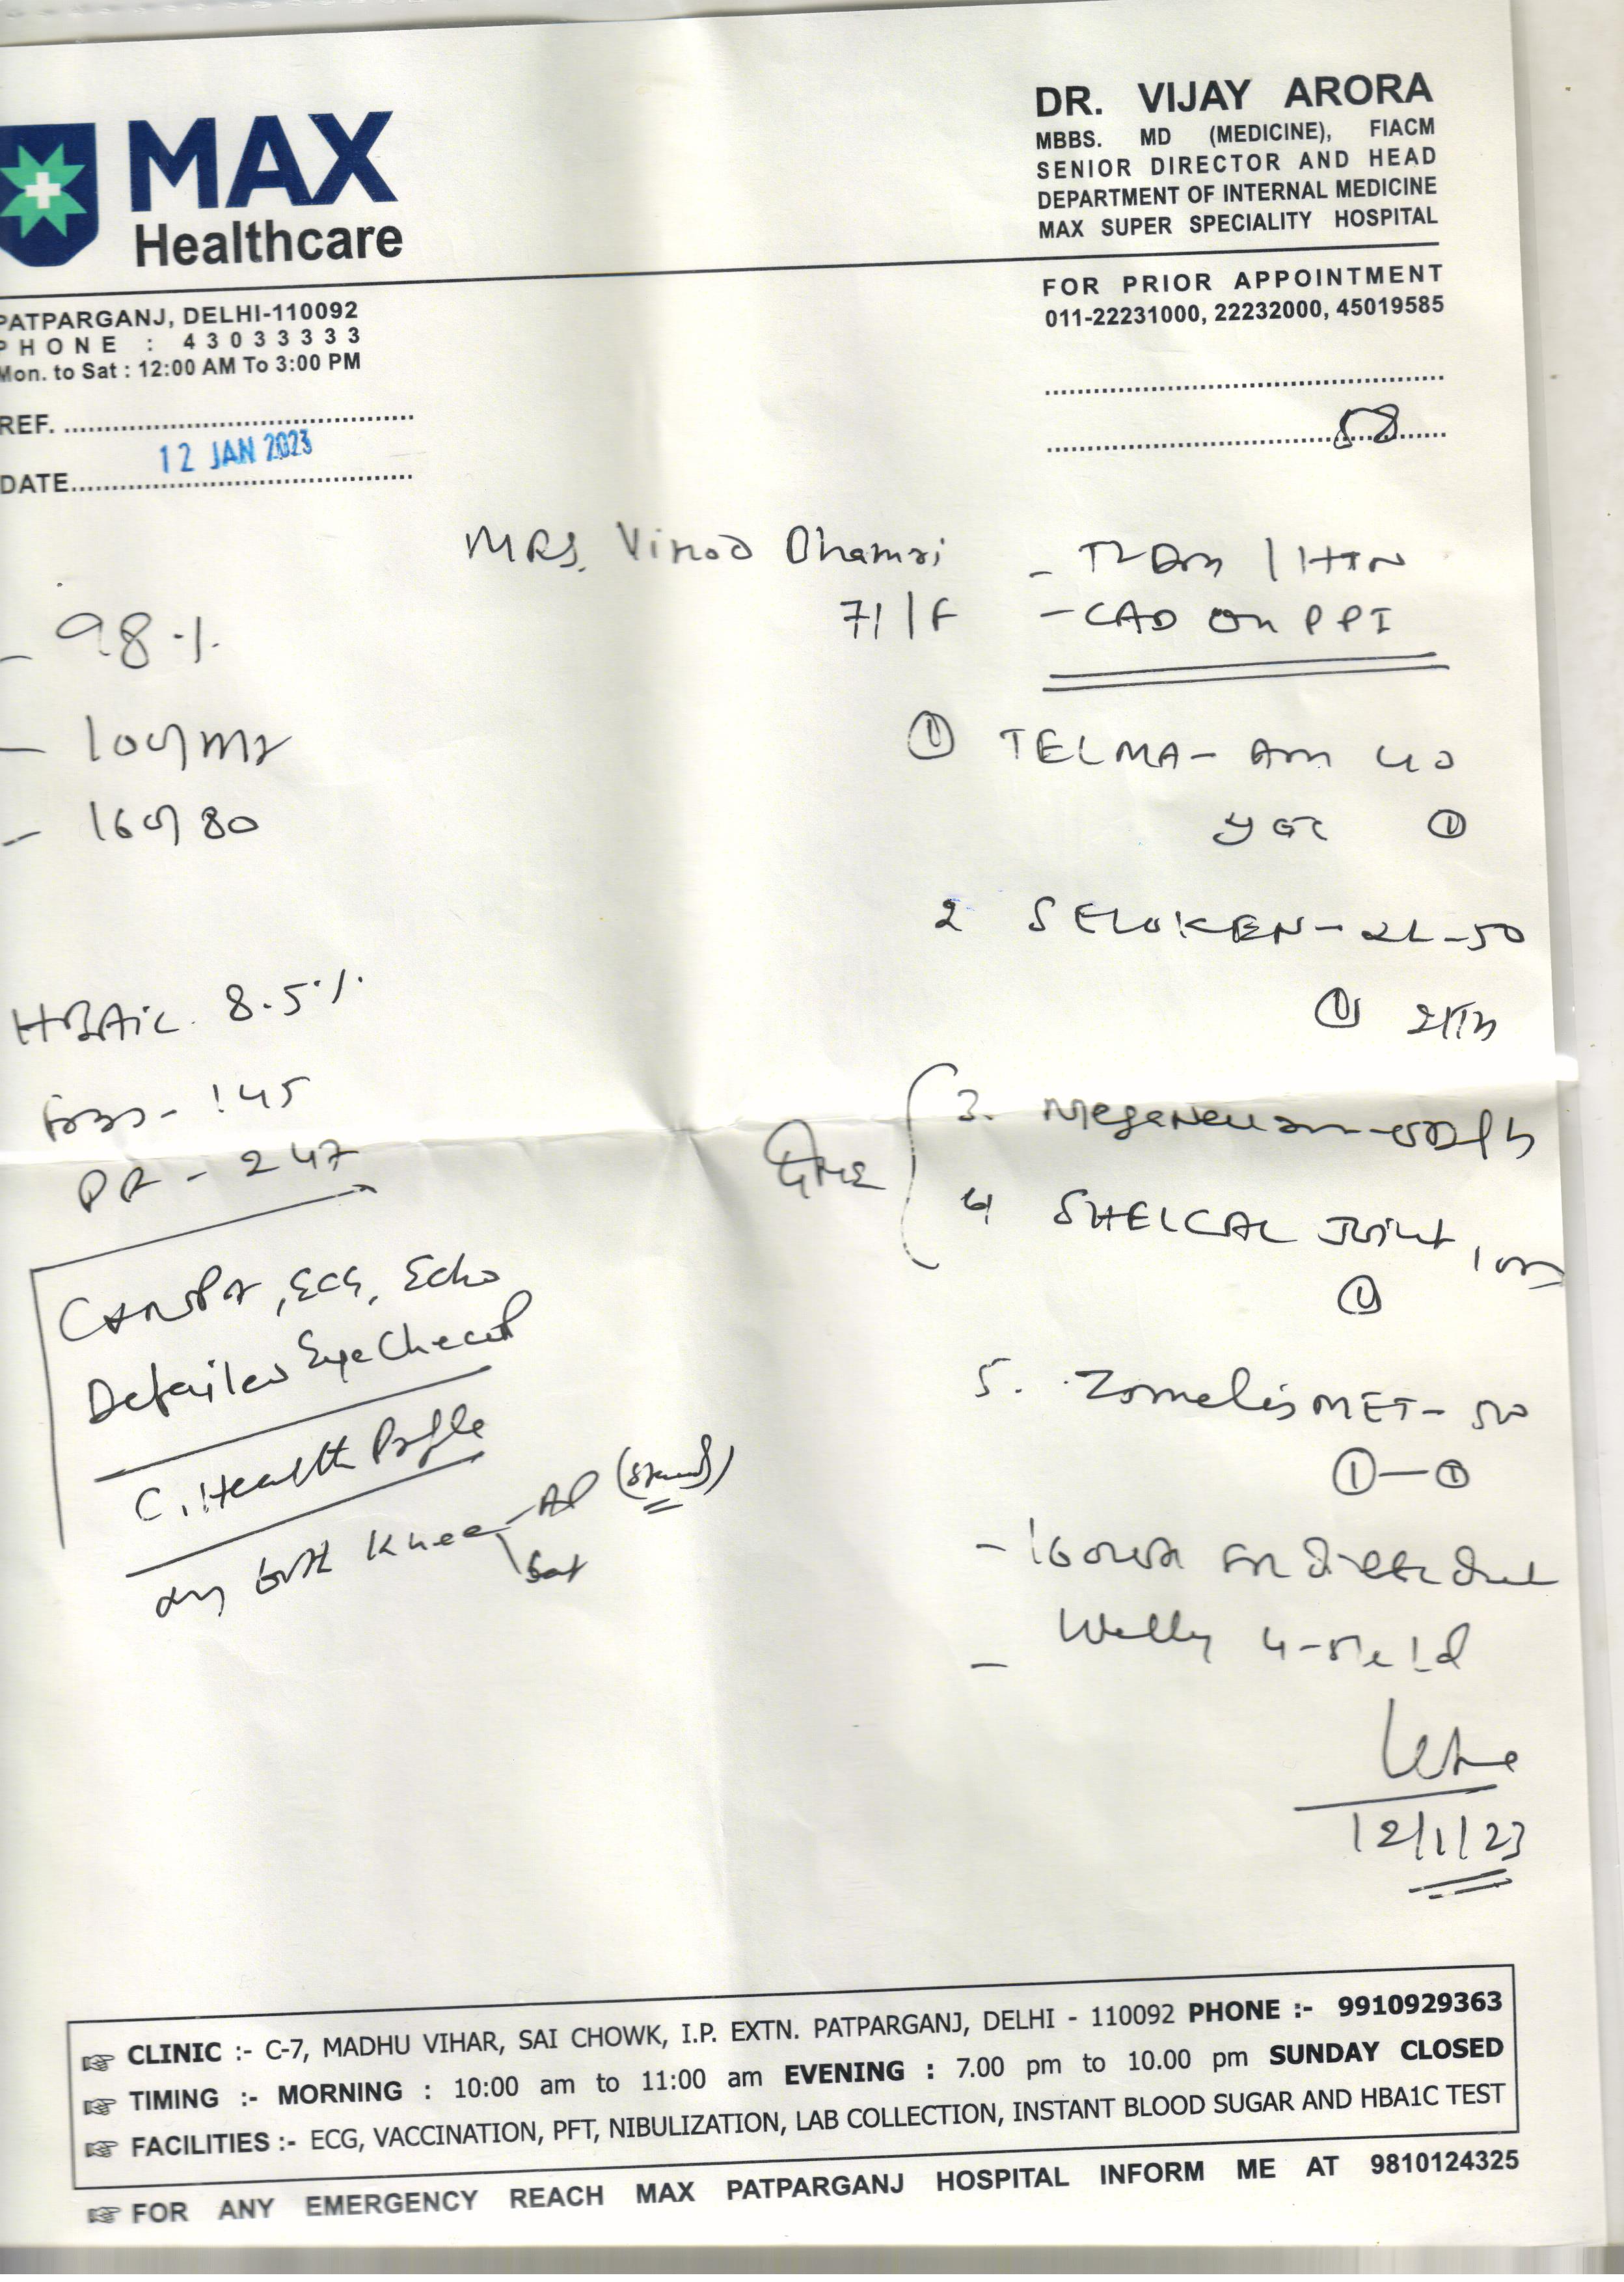 MAX
Healthcare
DR. VIJAY ARORA
MBBS. MD (MEDICINE), FIACM
SENIOR DIRECTOR AND HEAD
DEPARTMENT OF INTERNAL MEDICINE
MAX SUPER SPECIALITY HOSPITAL
PATPARGANJ, DELHI-110092
PHONE : 43033333
Mon. to Sat : 12:00 AM To 3:00 PM
FOR PRIOR APPOINTMENT
011-22231000, 22232000, 45019585
REF.
12 JAN 2023
DATE
58
MRS. Vinod Dhamri
71/F
- T2DM / HTN
- CAD on PPI
- 98 %
- 100/mr
- 160/80
HBA1C 8.5%
- 145
- 247
, ECG, Echo
Detailed Eye Checkup
C. Health Profile
Knee - AP
① TELMA - AM 40
①
2 SELOKEN - XL - 50
①
3.
4 SHELCAL Joint
①
5. Zomelis MET - 500
① — ①
-
-
12/1/23
CLINIC :- C-7, MADHU VIHAR, SAI CHOWK, I.P. EXTN. PATPARGANJ, DELHI - 110092 PHONE :- 9910929363
TIMING :- MORNING : 10:00 am to 11:00 am EVENING : 7.00 pm to 10.00 pm SUNDAY CLOSED
FACILITIES :- ECG, VACCINATION, PFT, NIBULIZATION, LAB COLLECTION, INSTANT BLOOD SUGAR AND HBA1C TEST
FOR ANY EMERGENCY REACH MAX PATPARGANJ HOSPITAL INFORM ME AT 9810124325